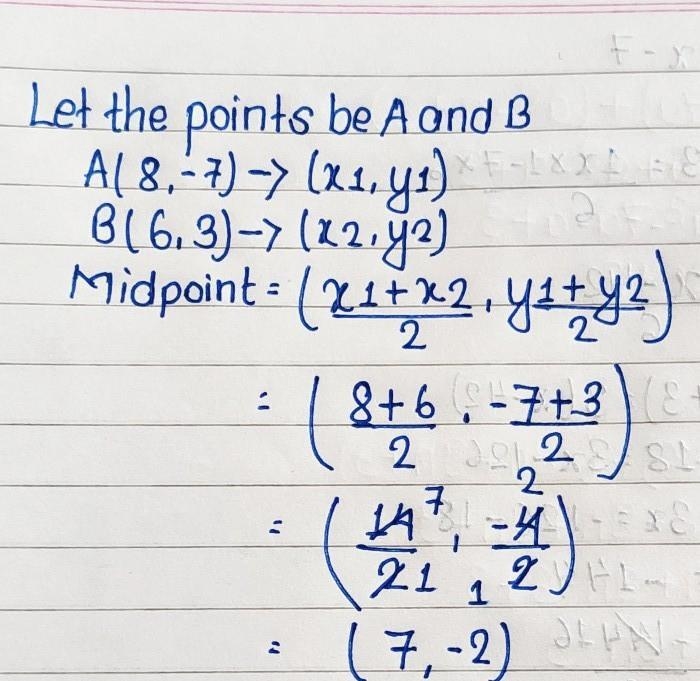 Let the points be A and B
A(8,-7) -> (x1, y1)
B(6,3) -> (x2, y2)
Midpoint = (x1+x2/2, y1+y2/2)
= (8+6/2, -7+3/2)
= (14/2, -4/2) 7 1 2 1
= (7, -2)